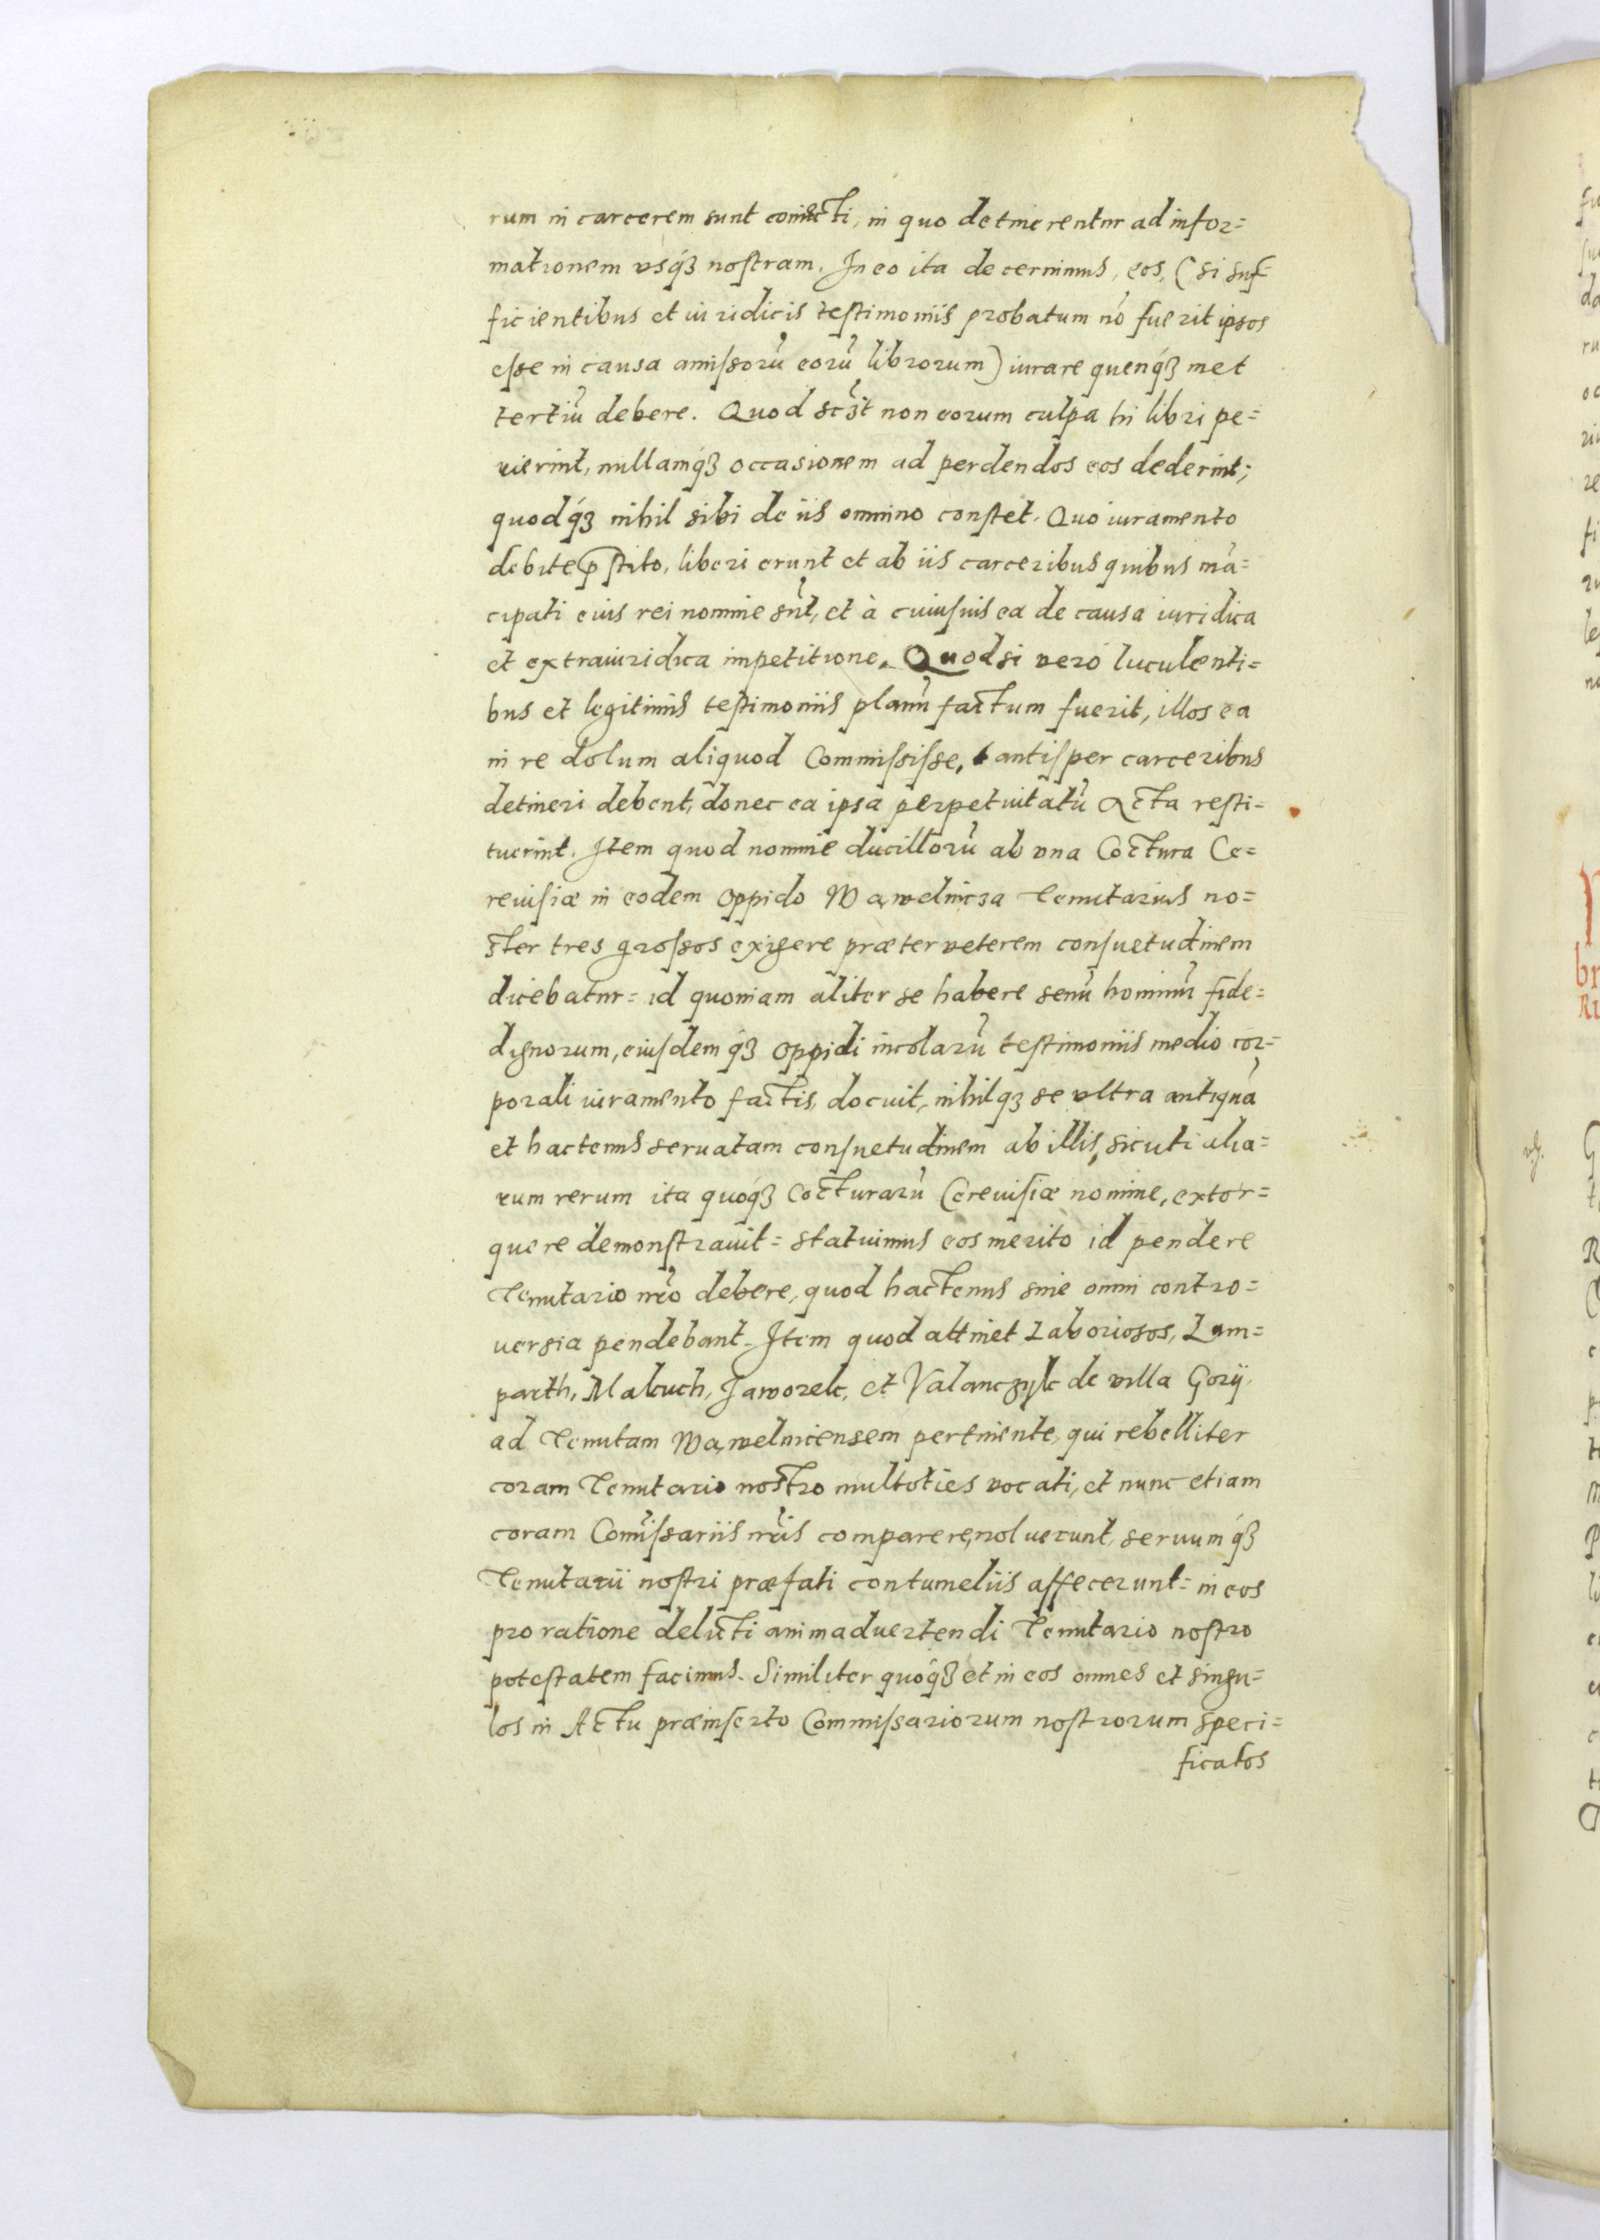 rum in carcerem sunt coniecti, in quo detinerentur ad infor=
mationem vsq́ꝫ nostram. In eo ita decernimus, eos, (si suf=
ficientibus et iuridicis testimoniis probatum nō fuerit ipsos
esse in causa amissorū eorū librorum) iurare quenq́ꝫ met
tertiū debere. Quod scꝫt non eorum culpa hi libri pe=
rierint, nullamq́ꝫ occasionem ad perdendos eos dederint;
quodq́ꝫ nihil sibi de iis omnino constet. Quo iuramento
debite p̄stito, liberi erunt et ab iis carceribus quibus mā=
cipati eius rei nomine sūt, et à cuiusuis ea de causa iuridica
et extraiuridica impetitione. Quod si vero luculenti=
bus et legitimis testimoniis planū factum fuerit, illos ea
in re dolum aliquod Commississe, tantisper carceribus
detineri debent, donec ea ipsa perpetuitatū Acta resti=
tuerint. Item quod nomine ducillorū ab vna Coctura Ce=
reuisiæ in eodem oppido Wawelnicza Tenutarius no=
ster tres grossos exigere præter veterem consuetudinem
dicebatur= id quoniam aliter se habere senū hominū fide=
dignorum, eiusdemq́ꝫ oppidi incolarū testimoniis medio cor=
porali iuramento factis, docuit, nihilqꝫ se vltra antiquā
et hactenus seruatam consuetudinem ab illis, sicuti alia=
rum rerum ita quoq́ꝫ cocturarū Cereuisiæ nomine, extor=
quere demonstrauit= statuimus eos merito id pendere
Tenutario nr̄o debere, quod hactenus sine omni contro=
uersia pendebant. Item quod attinet Laboriosos, Lam=
parth, Makuch, Jaworek, et Válanczÿk de villa Gorÿ,
ad Tenutam Wawelnicensem pertinente, qui rebelliter
coram Tenutario nostro multoties vocati, et nunc etiam
coram Com̄issariis nr̄is comparere, noluerunt, seruumq́ꝫ
Tenutarii nostri præfati contumeliis affecerunt= in eos
pro ratione delicti animaduertendi Tenutario nostro
potestatem facimus. Similiter quoq́ꝫ et in eos omnes et singu=
los in Actu præinserto Commissariorum nostrorum speci=
ficatos